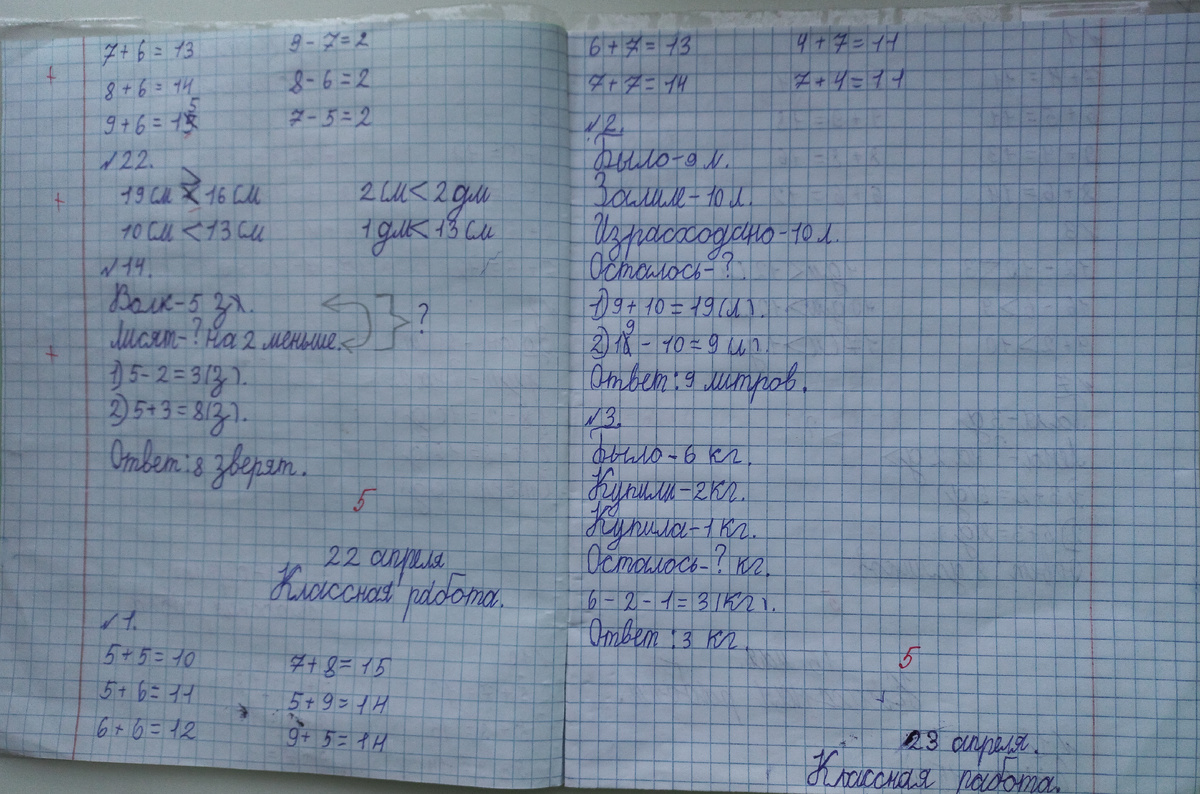 7 + 6 = 13 9 - 7 = 2
8 + 6 = 14 8 - 6 = 2
9 + 6 = 15 7 - 5 = 2
№22.
19 см > 16 см 2 см < 2 дм
10 см < 13 см 1 дм < 13 см
№14.
Волк - 5 з).
Лисят - ? на 2 меньше. ?
1) 5 - 2 = 3 (з).
2) 5 + 3 = 8 (з).
Ответ: 8 зверят.
5
22 апреля
Классная работа.
№1.
5 + 5 = 10 7 + 8 = 15
5 + 6 = 11 5 + 9 = 14
6 + 6 = 12 9 + 5 = 14
6 + 7 = 13 4 + 7 = 11
7 + 7 = 14 7 + 4 = 11
№2.
Было - 9 л.
Залили - 10 л.
Израсходано - 10 л.
Осталось - ?
1) 9 + 10 = 19 (л).
2) 19 - 10 = 9 (л).
Ответ: 9 литров.
№3.
Было - 6 кг.
Купили - 2 кг.
Купила - 1 кг.
Осталось - ? кг.
6 - 2 - 1 = 3 (кг).
Ответ: 3 кг.
5
23 апреля.
Классная работа.